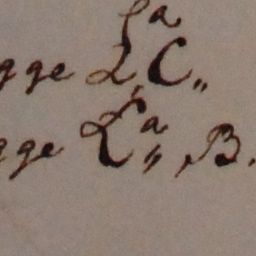 gge Lª C„
gge Lª„ B.